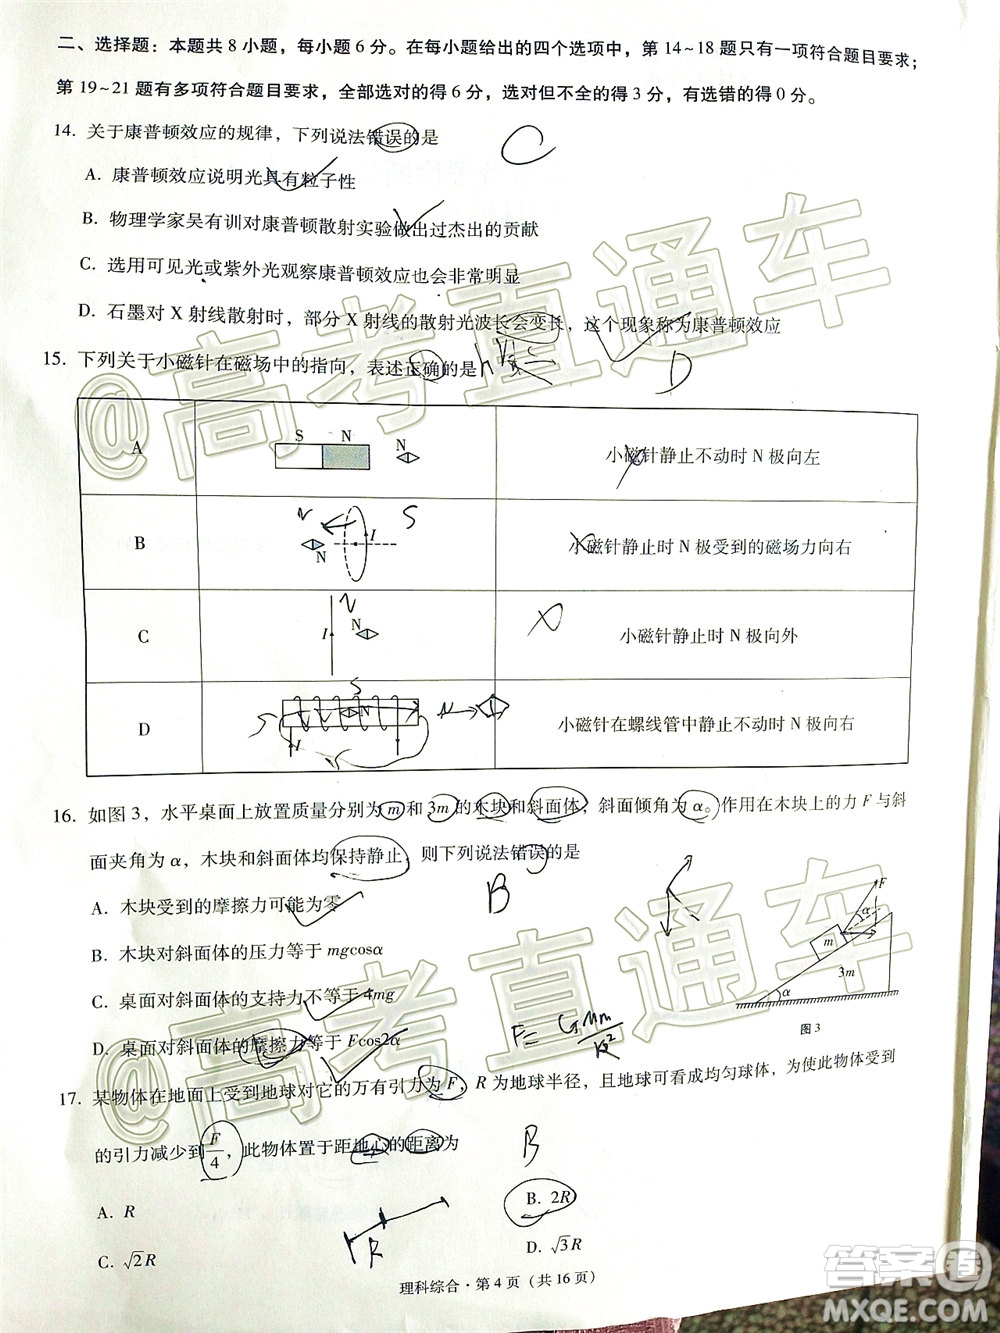 二、选择题：本题共 8 小题，每小题 6 分。在每小题给出的四个选项中，第 14~18 题只有一项符合题目要求；
第 19~21 题有多项符合题目要求，全部选对的得 6 分，选对但不全的得 3 分，有选错的得 0 分。
14. 关于康普顿效应的规律，下列说法错误的是
C
A. 康普顿效应说明光具有粒子性
B. 物理学家吴有训对康普顿散射实验做出过杰出的贡献
C. 选用可见光或紫外光观察康普顿效应也会非常明显
D. 石墨对 X 射线散射时，部分 X 射线的散射光波长会变长，这个现象称为康普顿效应
15. 下列关于小磁针在磁场中的指向，表述正确的是
D
A
S N N
小磁针静止不动时 N 极向左
B
N S
I
N
小磁针静止时 N 极受到的磁场力向右
C
N
I N
小磁针静止时 N 极向外
D
S
S N N
I
小磁针在螺线管中静止不动时 N 极向右
16. 如图 3，水平桌面上放置质量分别为 m 和 3m 的木块和斜面体，斜面倾角为 α。作用在木块上的力 F 与斜
面夹角为 α，木块和斜面体均保持静止，则下列说法错误的是
B
A. 木块受到的摩擦力可能为零
B. 木块对斜面体的压力等于 mgcosα
C. 桌面对斜面体的支持力不等于 4mg
D. 桌面对斜面体的摩擦力等于 Fcos2α
F
α
m
3m
α
图 3
17. 某物体在地面上受到地球对它的万有引力为 F，R 为地球半径，且地球可看成均匀球体，为使此物体受到
的引力减少到 F/4，此物体置于距地心的距离为
B
A. R
B. 2R
C. √2 R
D. √3 R
R
理科综合·第 4 页（共 16 页）
@高考直通车
@高考直通车
答案圈
MXQE.COM